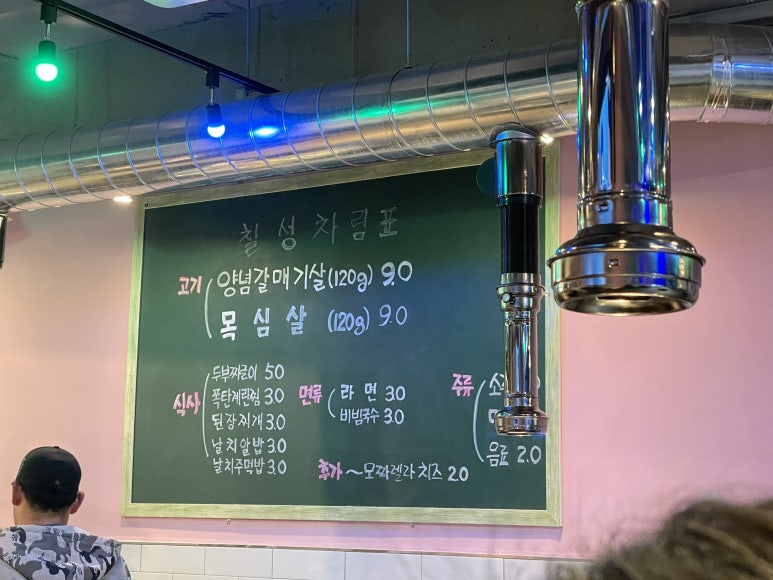 칠성차림표
고기 양념갈매기살(120g) 9.0
목심살 (120g) 9.0
식사 두부짜글이 5.0
폭탄계란찜 3.0
된장찌개 3.0
날치알밥 3.0
날치주먹밥 3.0
면류 라면 3.0
비빔국수 3.0
추가 ~모짜렐라치즈 2.0
주류
음료 2.0